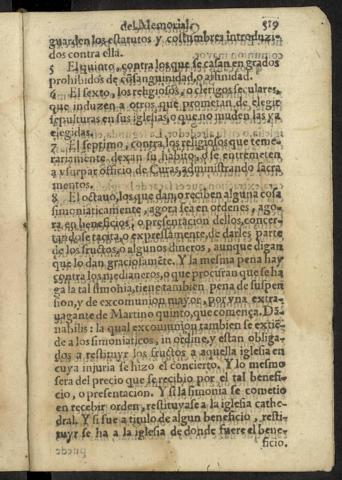 del Memorial. 519
guarden los estatutos y costumbres introduzi-
dos contra ella.
5 El quinto, contra los que se casan en grados
prohibidos de cõsanguinidad, o afinidad.
6 El sexto, los religiosos, o clerigos seculares,
que induzen a otros que prometan de elegir
sepulturas en sus iglesias, o que no muden las ya
elegidas.
7 El septimo, contra los religiosos que teme-
rariamente dexan su habito, o se entremeten
a vsurpar officio de Curas, administrando sacra
mentos.
8 El octauo, los que dan o reciben alguna cosa
simoniaticamente, agora sea en ordenes, ago-
ra en beneficios, o presentacion dellos, concer-
tandose tacita, o expressamente, de darles parte
de los fructos, o algunos dineros, aunque digan
que lo dan graciosamẽte. Y la mesma pena hay
contra los medianeros, o que procuran que se ha
ga la tal simonia, tiene tambien pena de suspen
sion, y de excomunion mayor, por vna extra-
uagante de Martino quinto, que comença. Dã-
nabilis: la qual excomunion tambien se extiẽ-
de a los simoniaticos, in ordine, y estan obliga-
dos a restituyr los fructos a aquella iglesia en
cuya injuria se hizo el concierto. Y lo mesmo
sera del precio que se recibio por el tal benefi-
cio, o presentacion. Y si la simonia se cometio
en recebir orden, restituyase a la iglesia cathe-
dral. Y si fue a titulo de algun beneficio, resti-
tuyr se ha a la iglesia de donde fuere el bene-
ficio.